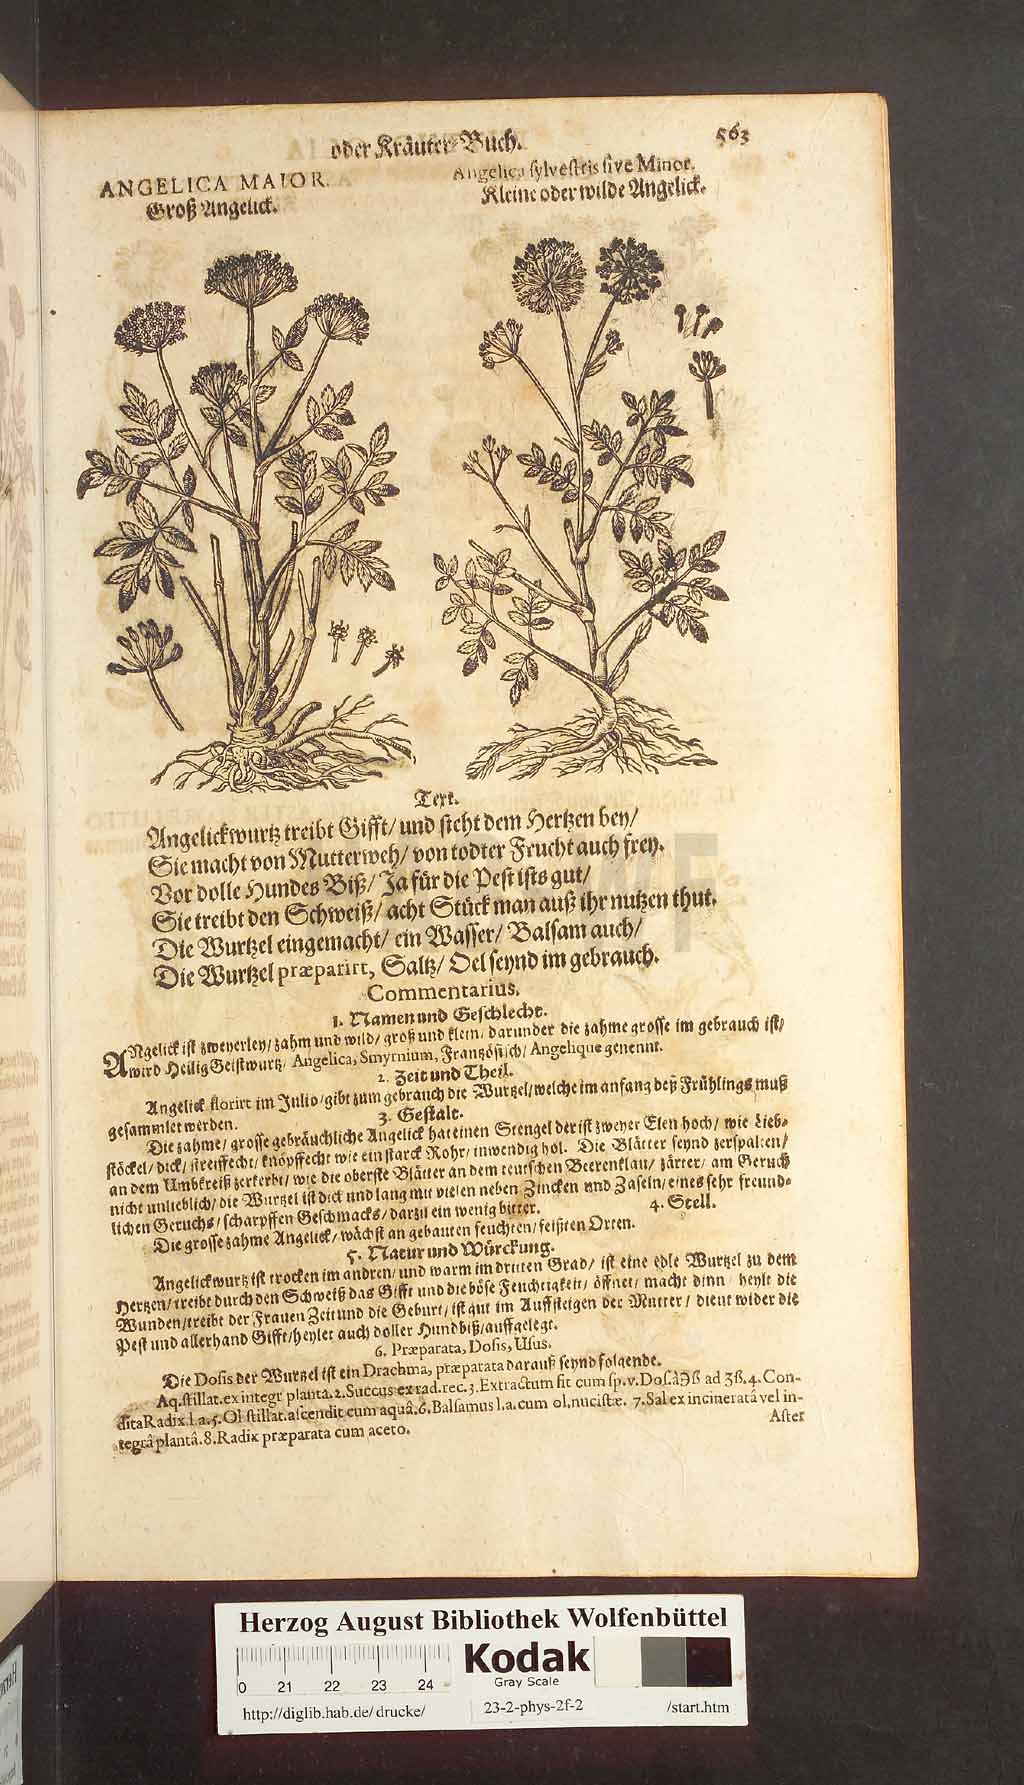 oder Kräuter-Buch.
563
ANGELICA MAIOR.
Groß Angelick.
Angelica sylvestris sive Minor.
Kleine oder wilde Angelick.
Text.
Angelickwurtz treibt Gifft/ und steht dem Hertzen bey/
Sie macht von Mutterweh/ von todter Frucht auch frey.
Vor dolle Hundes Biß/ Ja für die Pest ists gut/
Sie treibt den Schweiß/ acht Stück man auß ihr nutzen thut.
Die Wurtzel eingemacht/ ein Wasser/ Balsam auch/
Die Wurtzel præparirt, Saltz/ Oel seynd im gebrauch.
Commentarius.
1. Namen und Geschlecht.
ANgelick ist zweyerley/ zahm und wild/ groß und klein/ darunder die zahme grosse im gebrauch ist/
wird Heilig Geistwurtz/ Angelica, Smyrnium, Frantzösisch/ Angelique genennt.
2. Zeit und Theil.
Angelick florirt im Julio/ gibt zum gebrauch die Wurtzel/ welche im anfang deß Frühlings muß
gesammlet werden.
3. Gestalt.
Die zahme/ grosse gebräuchliche Angelick hat einen Stengel der ist zweyer Elen hoch/ wie Lieb-
stöckel/ dick/ streiffecht/ knöpffecht wie ein starck Rohr/ inwendig hol. Die Blätter seynd zerspalten/
an dem Umbkreiß zerkerbt/ wie die oberste Blätter an dem teutschen Beerenklau/ zärter/ am Geruch
nicht unlieblich/ die Wurtzel ist dick und lang mit vielen neben Zincken und Zaseln/ eines sehr freund-
lichen Geruchs/ scharpffen Geschmacks/ darzu ein wenig bitter.
4. Stell.
Die grosse zahme Angelick/ wächst an gebauten feuchten/ feißten Orten.
5. Natur und Würckung.
Angelickwurtz ist trocken im andren/ und warm im dritten Grad/ ist eine edle Wurtzel zu dem
Hertzen/ treibt durch den Schweiß das Gifft und die böse Feuchtigkeit/ öffnet/ macht dinn/ heylt die
Wunden/ treibt der Frauen Zeit und die Geburt/ ist gut im Auffsteigen der Mutter/ dient wider die
Pest und allerhand Gifft/ heylet auch doller Hund biß/ auffgelegt.
6. Præparata, Dosis, Usus.
Die Dosis der Wurtzel ist ein Drachma, præparata darauß seynd folgende.
Aq. stillat. ex integr planta. 2. Succus ex rad. rec. 3. Extractum fit cum sp. v. Dos. à ℈ß ad ʒß. 4. Con-
dita Radix l. a. 5. Ol stillat. ascendit cum aquâ. 6. Balsamus l. a. cum ol. nucistæ. 7. Sal ex incineratâ vel in-
tegrâ plantâ. 8. Radix præparata cum aceto.
Aster
Herzog August Bibliothek Wolfenbüttel
Kodak
Gray Scale
0 21 22 23 24
http://diglib.hab.de/drucke/
23-2-phys-2f-2
/start.htm